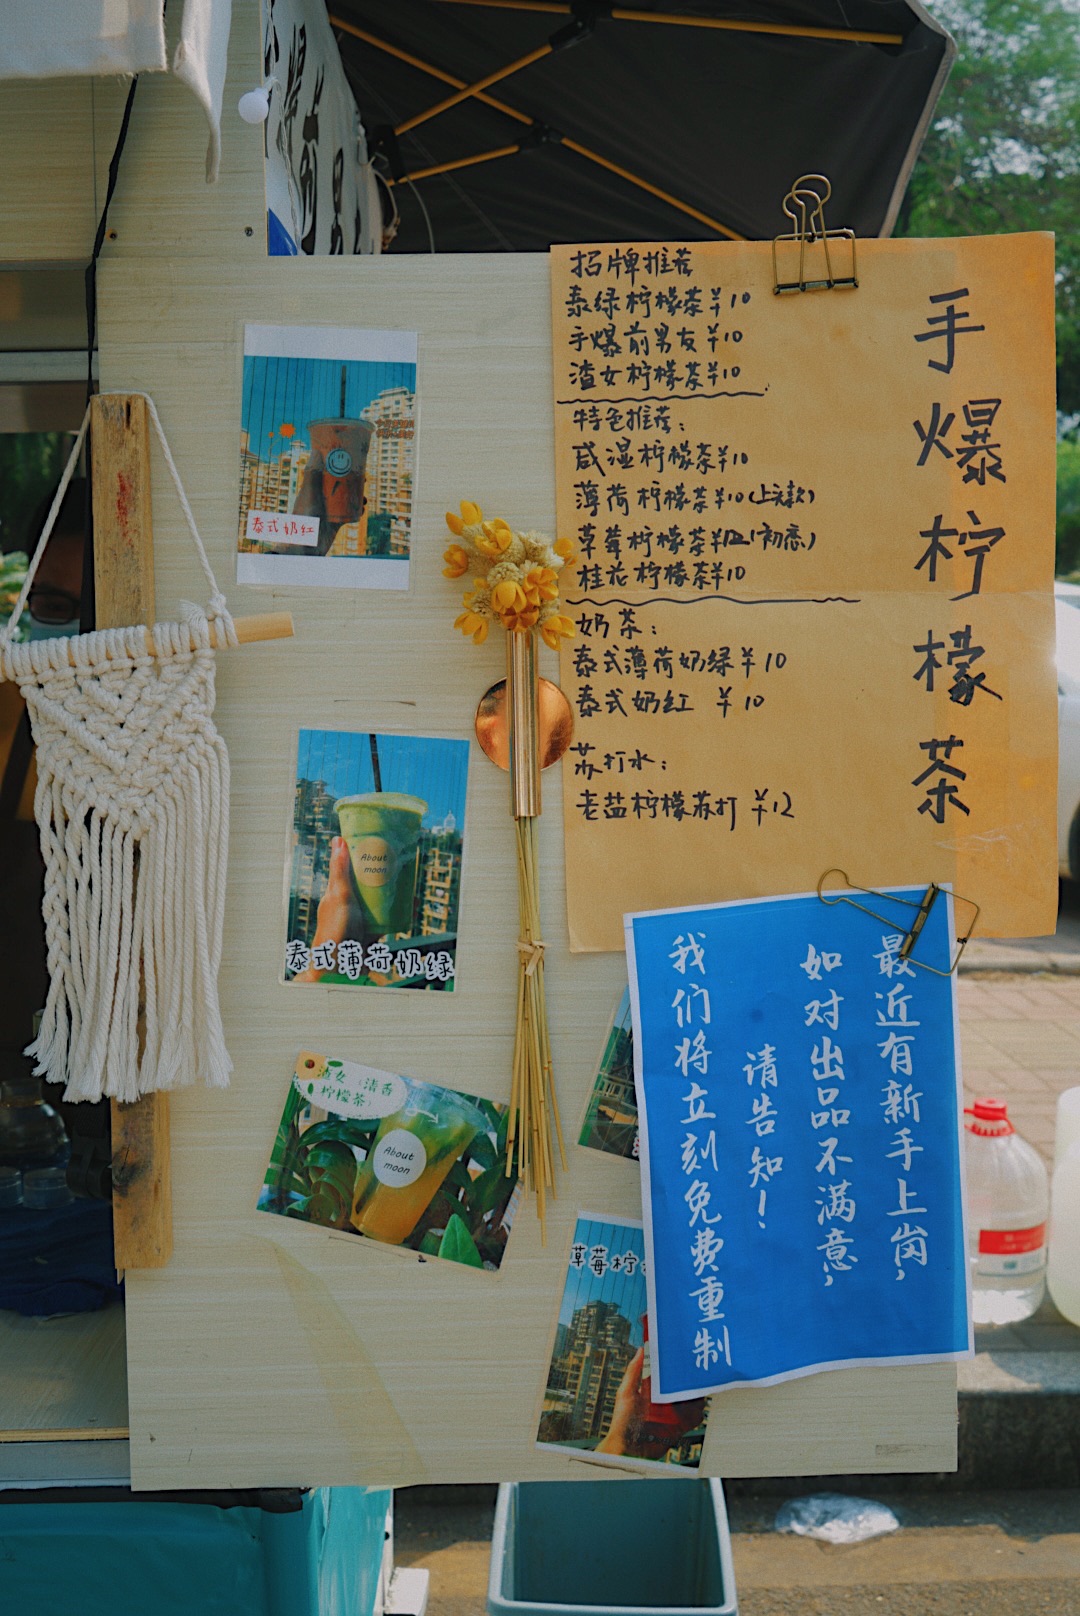 招牌推荐
泰绿柠檬茶¥10
手爆前男友¥10
渣女柠檬茶¥10
特色推荐：
咸湿柠檬茶¥10
薄荷柠檬茶¥10(上头款)
草莓柠檬茶¥12(初恋)
桂花柠檬茶¥10
奶茶：
泰式薄荷奶绿¥10
泰式奶红 ¥10
苏打水：
老盐柠檬苏打 ¥12
手爆柠檬茶
最近有新手上岗，
如对出品不满意，
请告知！
我们将立刻免费重制
泰式奶红
About
moon
泰式薄荷奶绿
渣女（清香
柠檬茶）
About
moon
草莓柠